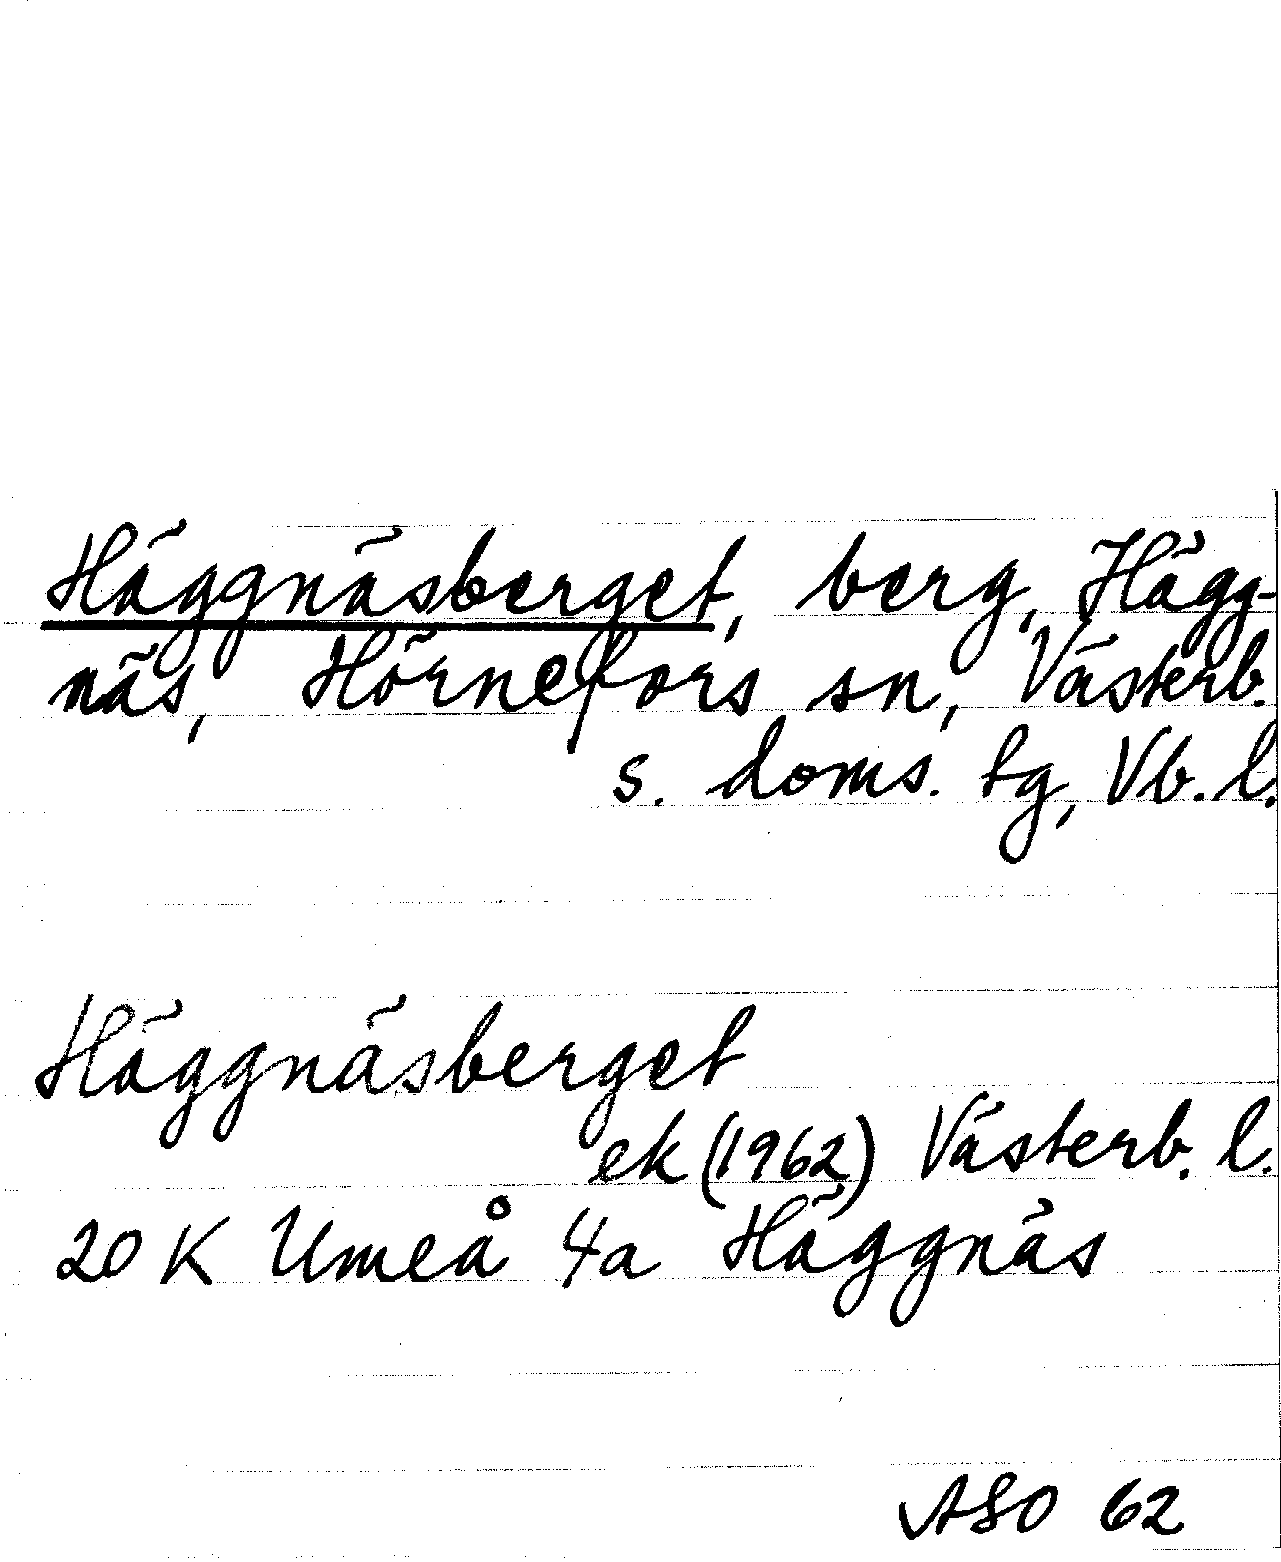 Häggnäsberget, berg, Hägg-
näs, Hörnefors sn, Västerb.
s. doms. tg, Vb. l.
Häggnäsberget
ek (1962) Västerb. l.
20 K Umeå 4a Häggnäs
ASO 62